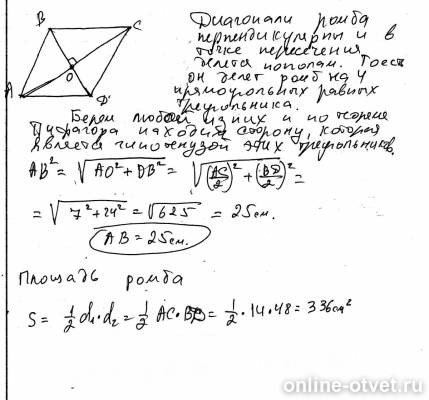 B C
O
A D
Диагонали ромба
перпендикулярны и в
точке пересечения
делятся пополам. Тоесть
он делет ромб на 4
прямоугольных равных
треугольника.
Берем любой из них и по теореме
Пифагора находим сторону, которая
является гипотенузой этих треугольников.
AB² = √(AO² + OB²) = √((AC/2)² + (BD/2)²) =
= √(7² + 24²) = √625 = 25см.
AB = 25см.
Площадь ромба
S = 1/2 d₁·d₂ = 1/2 AC·BD = 1/2·14·48 = 336см²
online-otvet.ru